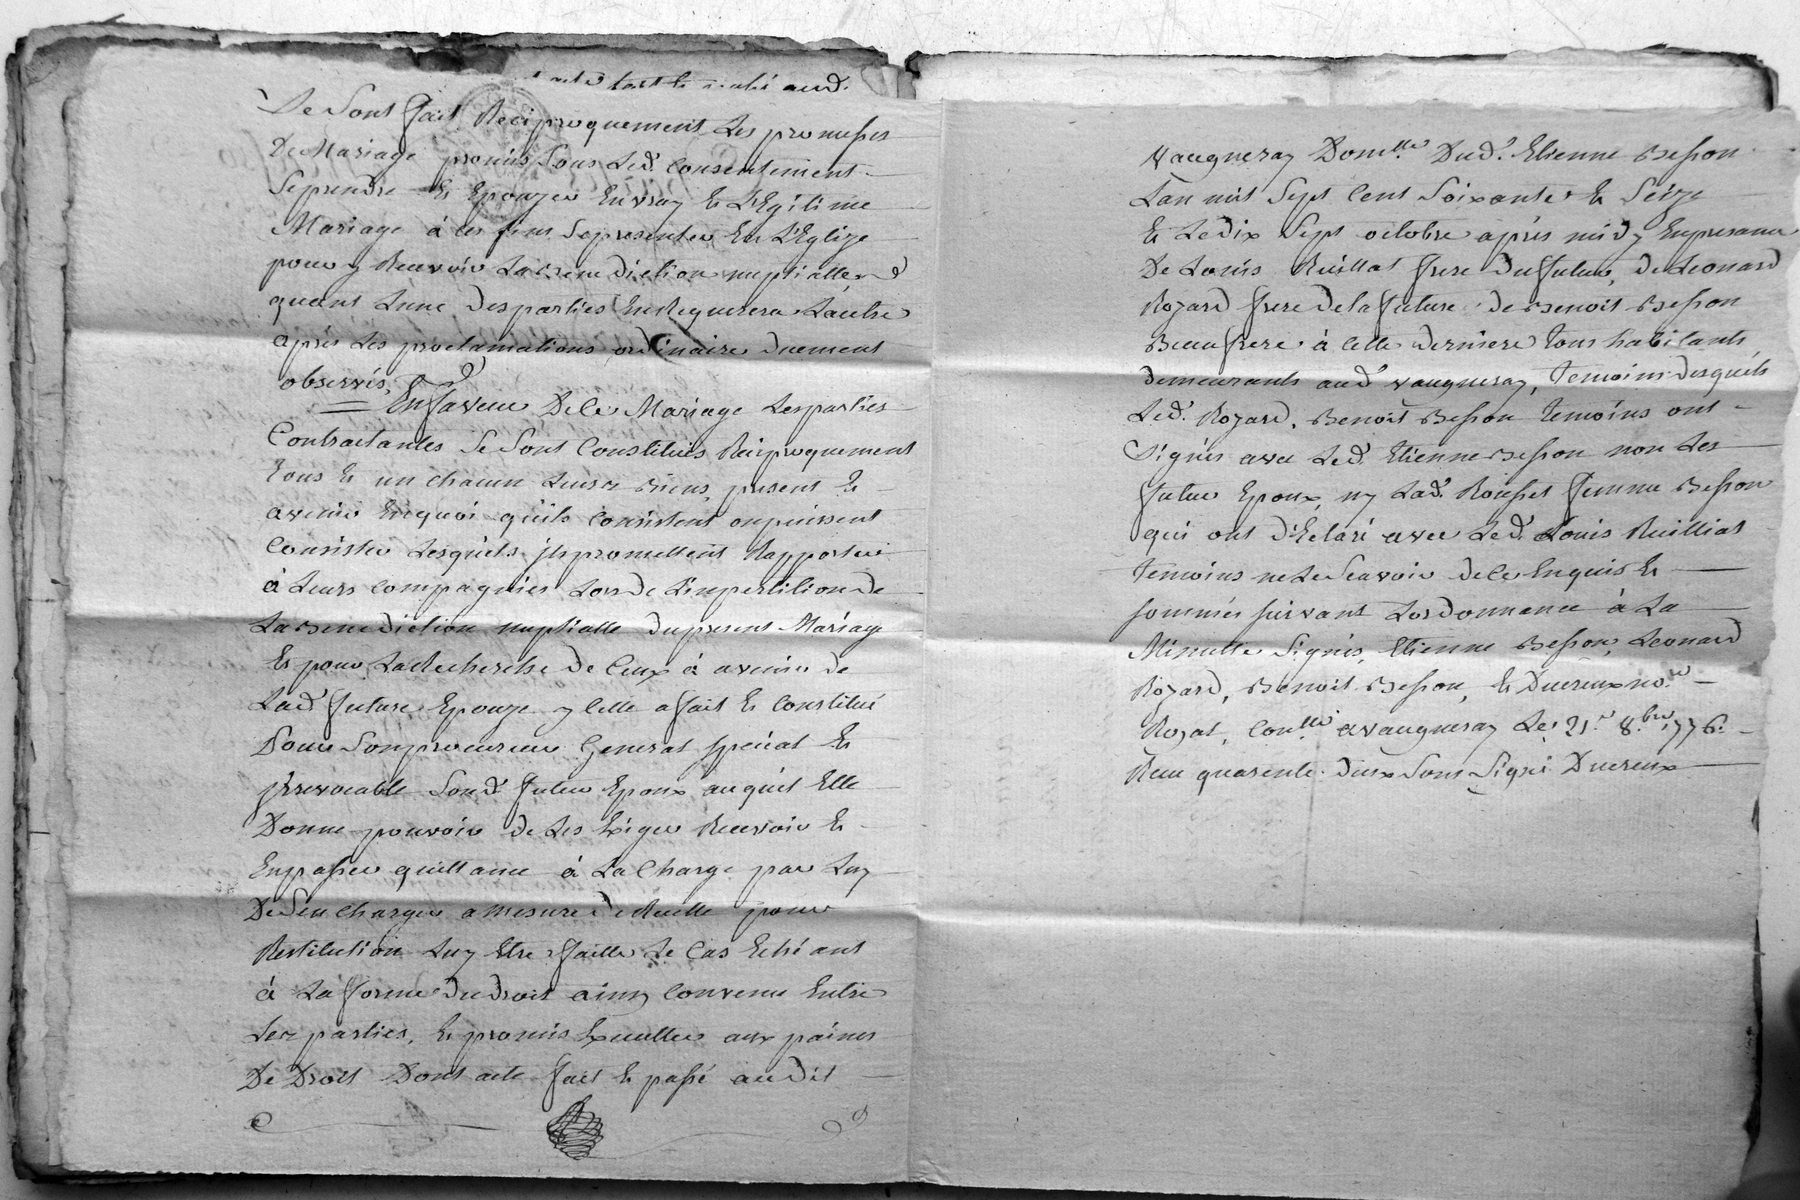 De Sont fait Reciproquement Les promesses
De Mariage promis Sous Led. Consentement
Se prendre Et Epouzer En vray Et Légitime
Mariage à Ces fins Se presenter En L'Eglize
pour y Recevoir La Benediction nuptialle
quant Lune des parties En Requerera Lautre
après Les proclamations ordinaire duement
observés,
En faveur De Ce Mariage Les parties
Contractantes Se Sont Constitués Reciproquement
tous Et un chacun Leurs Biens, presents Et
avenir En quoi quils Consistent ou puissent
Consister Lesquels ils promettent Rapporter
à Leurs compagnies Lors de L'impertition de
La Benediction nuptialle du present Mariage
Et pour La Recherche de Ceux à avenir de
Lad. future Epouze y Celle a fait Et Constitué
Pour Son procureur General Special Et
jrrevocable Sond. futur Epoux auquel Elle
Donne pouvoir de Les Exiger Recevoir Et
En passer quittance à La Charge par Luy
De S'en charger a mesure de Recette pour
Restitution Luy Etre faitte Le Cas Echéant
à La forme du droit ainsy Convenu Entre
Les parties, Et promis Executter aux paines
De Droit Dont acte fait Et passé au Dit
Vaugneray Domlle Dud. Etienne Besson
Lan mil Sept Cent Soixante Et Seize
Et Le dix Sept octobre après midy En presance
De Louis Ruillat frere du futur, de Leonard
Rozard frere de la future de Benoit Besson
Beaufrere à Cette derniere tous habitants
demeurants aud. vaugneray, temoins desquels
Led. Rozard, Benoit Besson temoins ont
Signés avec Led. Etienne Besson non Les
futur Epoux, ny Lad. femme Besson
qui ont déclaré avec Led. Louis Ruilliat
temoins ne Le Scavoir de Ce Enquis Et
sommés suivant Lordonnance à La
Minutte Signés, Etienne Besson, Leonard
Rozard, Benoit Besson, Et Ducreux nore
Royal, Conllé a vaugneray Le 21e 8bre 1776.
Recu quarente deux Sous Signé Ducreux